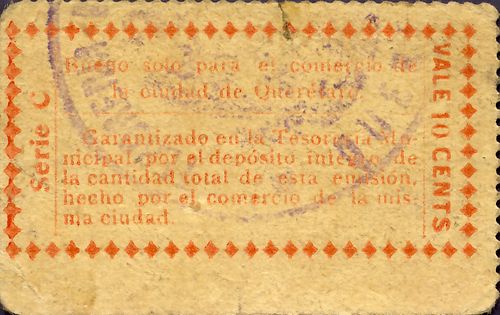 Bueno solo para el comercio de
la ciudad de Querétaro.
Garantizado en la Tesorería Mu-
nicipal, por el depósito integro de
la cantidad total de esta emisión,
hecho por el comercio de la mis-
ma ciudad.
Serie C
VALE 10 CENTS